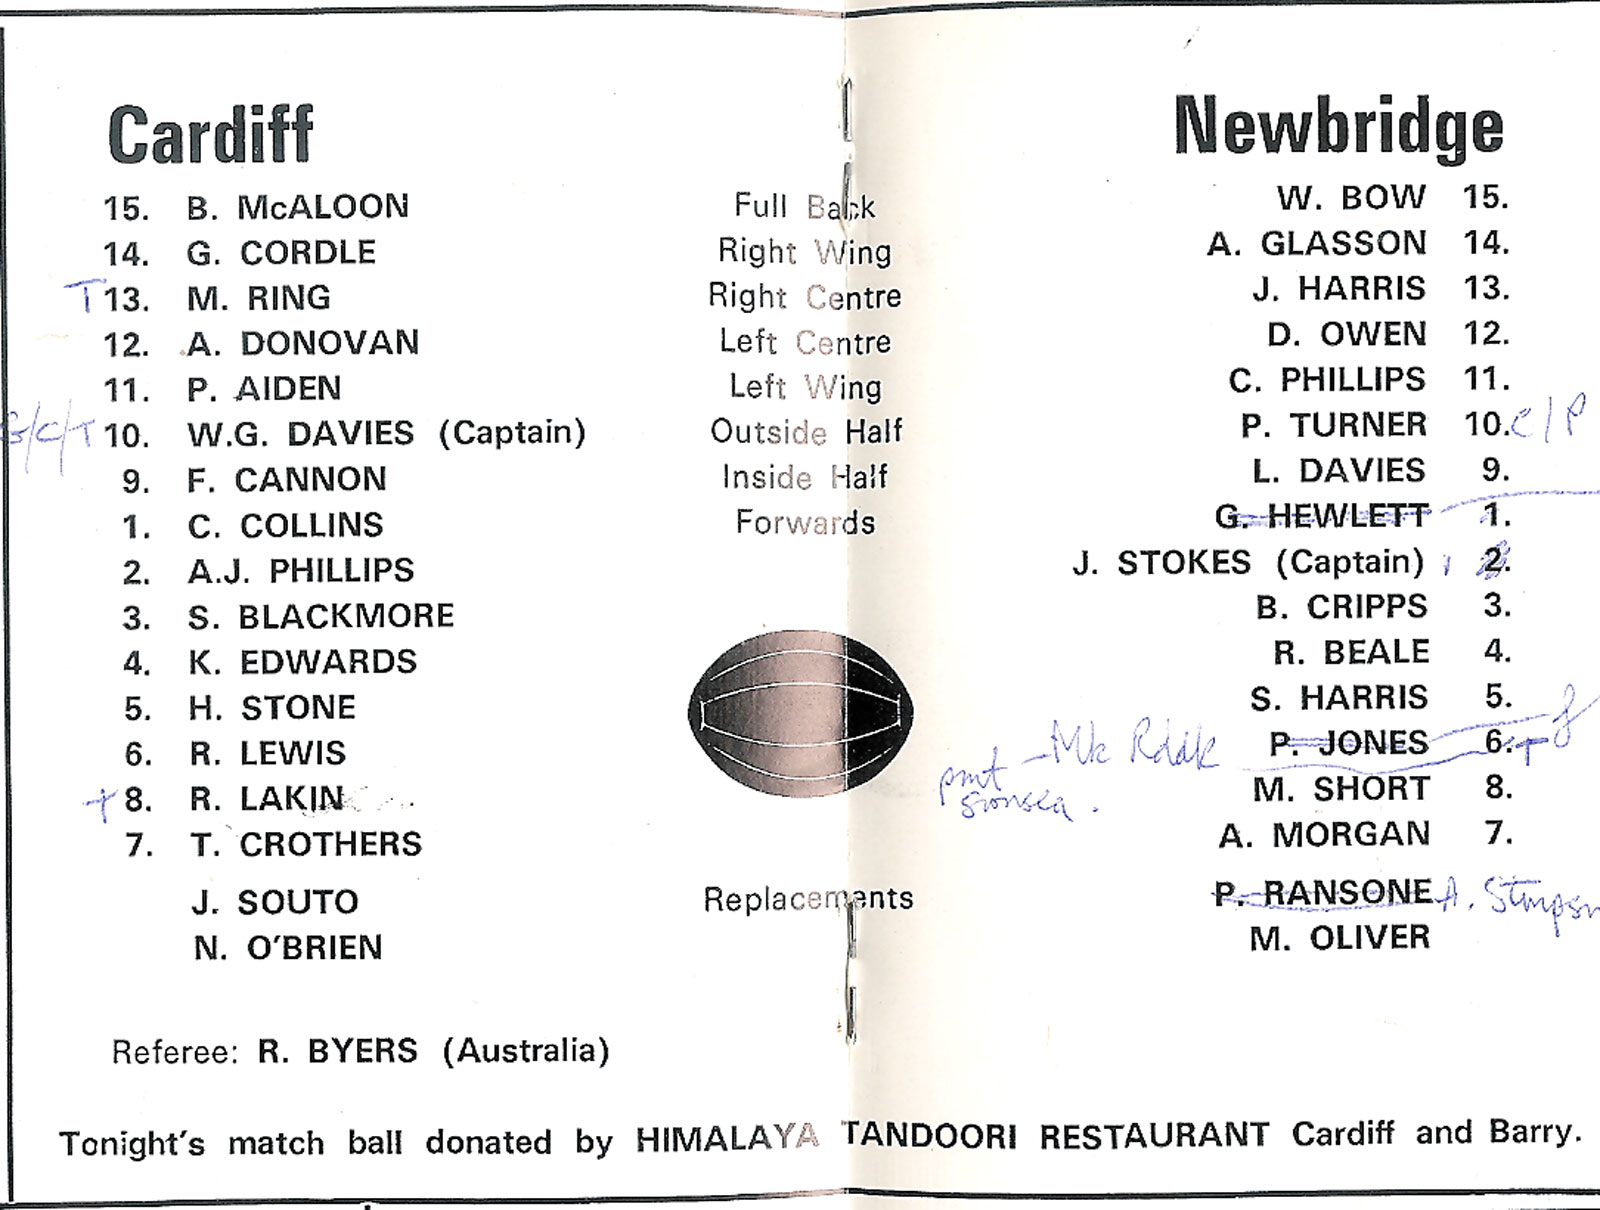 Cardiff Newbridge
15. B. McALOON Full Back W. BOW 15.
14. G. CORDLE Right Wing A. GLASSON 14.
T 13. M. RING Right Centre J. HARRIS 13.
12. A. DONOVAN Left Centre D. OWEN 12.
11. P. AIDEN Left Wing C. PHILLIPS 11.
/C/T 10. W.G. DAVIES (Captain) Outside Half P. TURNER 10. C/P
9. F. CANNON Inside Half L. DAVIES 9.
1. C. COLLINS Forwards G. HEWLETT 1.
2. A.J. PHILLIPS J. STOKES (Captain) 1 2.
3. S. BLACKMORE B. CRIPPS 3.
4. K. EDWARDS R. BEALE 4.
5. H. STONE S. HARRIS 5.
6. R. LEWIS P. JONES 6. T
T 8. R. LAKIN M. SHORT 8.
7. T. CROTHERS A. MORGAN 7.
J. SOUTO Replacements P. RANSONE A.
N. O'BRIEN M. OLIVER
Referee: R. BYERS (Australia)
Tonight's match ball donated by HIMALAYA TANDOORI RESTAURANT Cardiff and Barry.